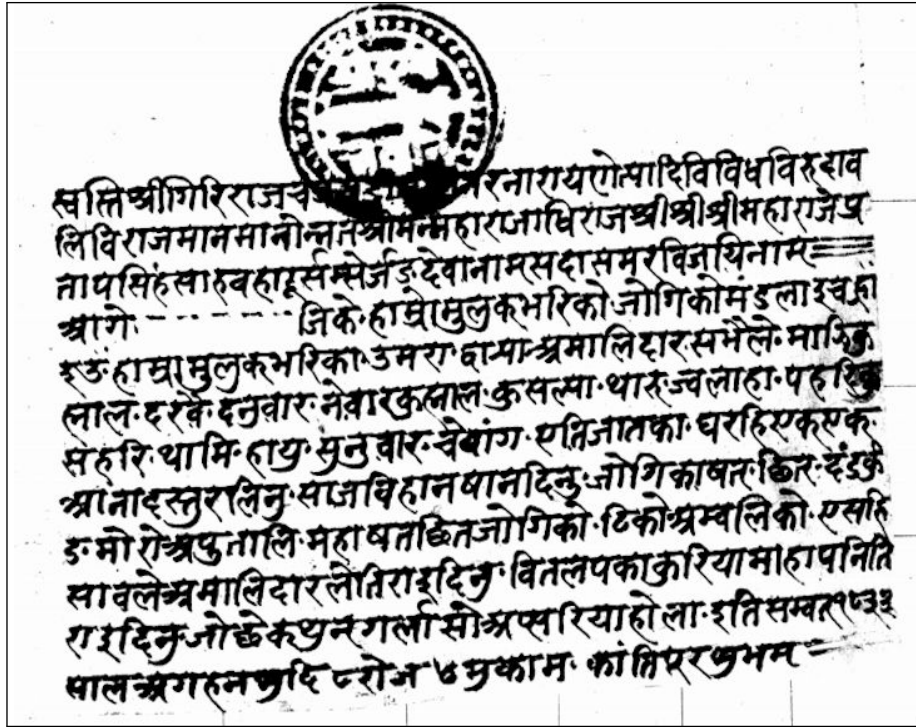 स्वस्ति श्रीगिरिराजच नरनारायणेत्यादिविविधविरुदाव
लिविराजमानमानोन्नतश्रीमन्महाराजाधिराजश्रीश्रीश्रीमहाराजप्र
तापसिंहसाहवहादूर्सम्सेर्जङ्देवानाम्सदासमरविजयिनाम्
आगे जिके हाम्रा मुलुकभरिको जोगिको मंडलाइ
हाम्रा मुलुकभरिका उमरा द्वाऱ्या अमालिदार सभैले माझि कु
ह्माल दरवै दनुवार नेवार कुह्माल कुसल्या थारु ज्वलाहा पहरि कु
सहरि थामि हायु सुनुवार चेपांग एति जातका घरहि एक एक
आना दस्तुर लिनु साज विहान षान दिनु जोगिका षत छित दंड कुं
ड मोरो अपुतालि महाषत छित जोगिको टिको अम्वलिको एस हि
सावले अमालिदारले तिराइदिनु वितलपका कुरियामाहा पनि ति
राइदिनु जो छेकथुन गर्ला सो अप्सरिया होला इति सम्वत् १८३३
साल अगहन शुदि ८ रोज ५ मुकाम कांतिपुर शुभम्